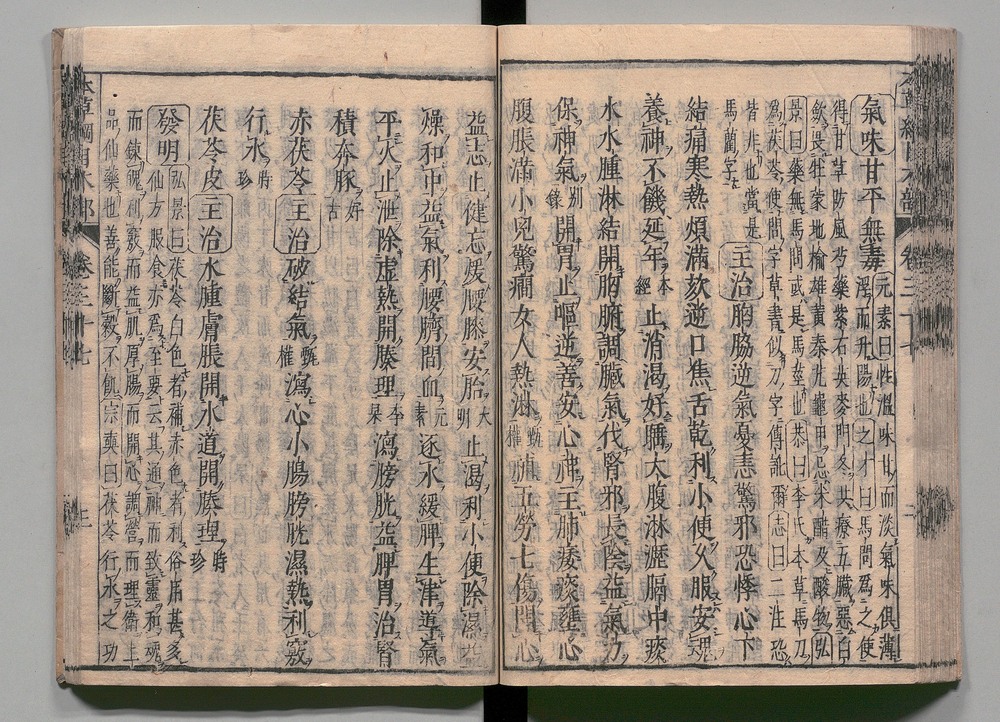 氣味甘平無毒元素曰性溫味甘而淡氣味俱薄
浮而升陽也之才曰馬間為之使
得甘草防風芍藥紫石英麥門冬共療五臟惡白
斂畏牡蒙地榆雄黃秦艽龜甲忌米醋及酸物弘
景曰藥無馬間或是馬莖也恭曰李氏本草馬刀
為茯苓使間字草書似刀字傳訛爾志曰二注恐
皆非也當是
馬藺字
主治胸脇逆氣憂恚驚邪恐悸心下
結痛寒熱煩滿欬逆口焦舌乾利小便久服安魂
養神不饑延年本經止消渴好睡大腹淋瀝膈中痰
水水腫淋結開胸腑調臟氣伐腎邪長陰益氣力
保神氣別錄開胃止嘔逆善安心神主肺痿痰壅心
腹脹滿小兒驚癇女人熱淋甄權補五勞七傷開心
益志止健忘煖腰膝安胎大明止渴利小便除濕益
燥和中益氣利腰臍間血元素逐水緩脾生津導氣
平火止泄除虛熱開腠理李杲瀉膀胱益脾胃治腎
積奔豚好古
赤茯苓主治破結氣甄權瀉心小腸膀胱濕熱利竅
行水時珍
茯苓皮主治水腫膚脹開水道開腠理時珍
發明弘景曰茯苓白色者補赤色者利俗用甚多
仙方服食亦為至要云其通神而致靈和魂
而鍊魄利竅而益肌厚腸而開心調營而理衛上
品仙藥也善能斷穀不飢宗奭曰茯苓行水之功
本草綱目木部 卷三十七 上